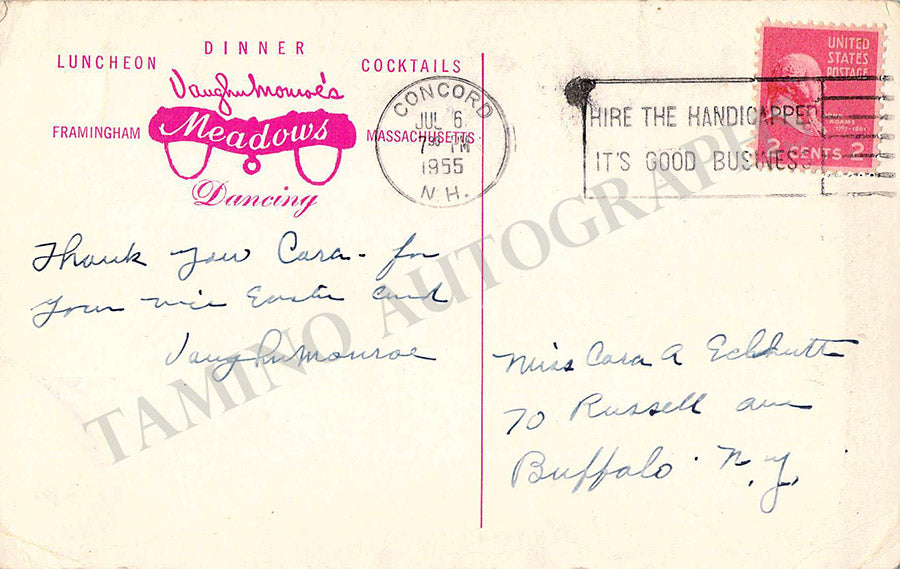 DINNER
LUNCHEON COCKTAILS
Vaughn Monroe's
FRAMINGHAM Meadows MASSACHUSETTS
Dancing
CONCORD
JUL 6
PM
1955
N.H.
HIRE THE HANDICAPPED
IT'S GOOD BUSINESS
UNITED
STATES
POSTAGE
ADAMS
2 CENTS 2
Thank you Cara - for
your nice Easter card
Vaughn Monroe
Miss Cara A
70 Russell ave
Buffalo N.Y.
TAMINO AUTOGRAPHS